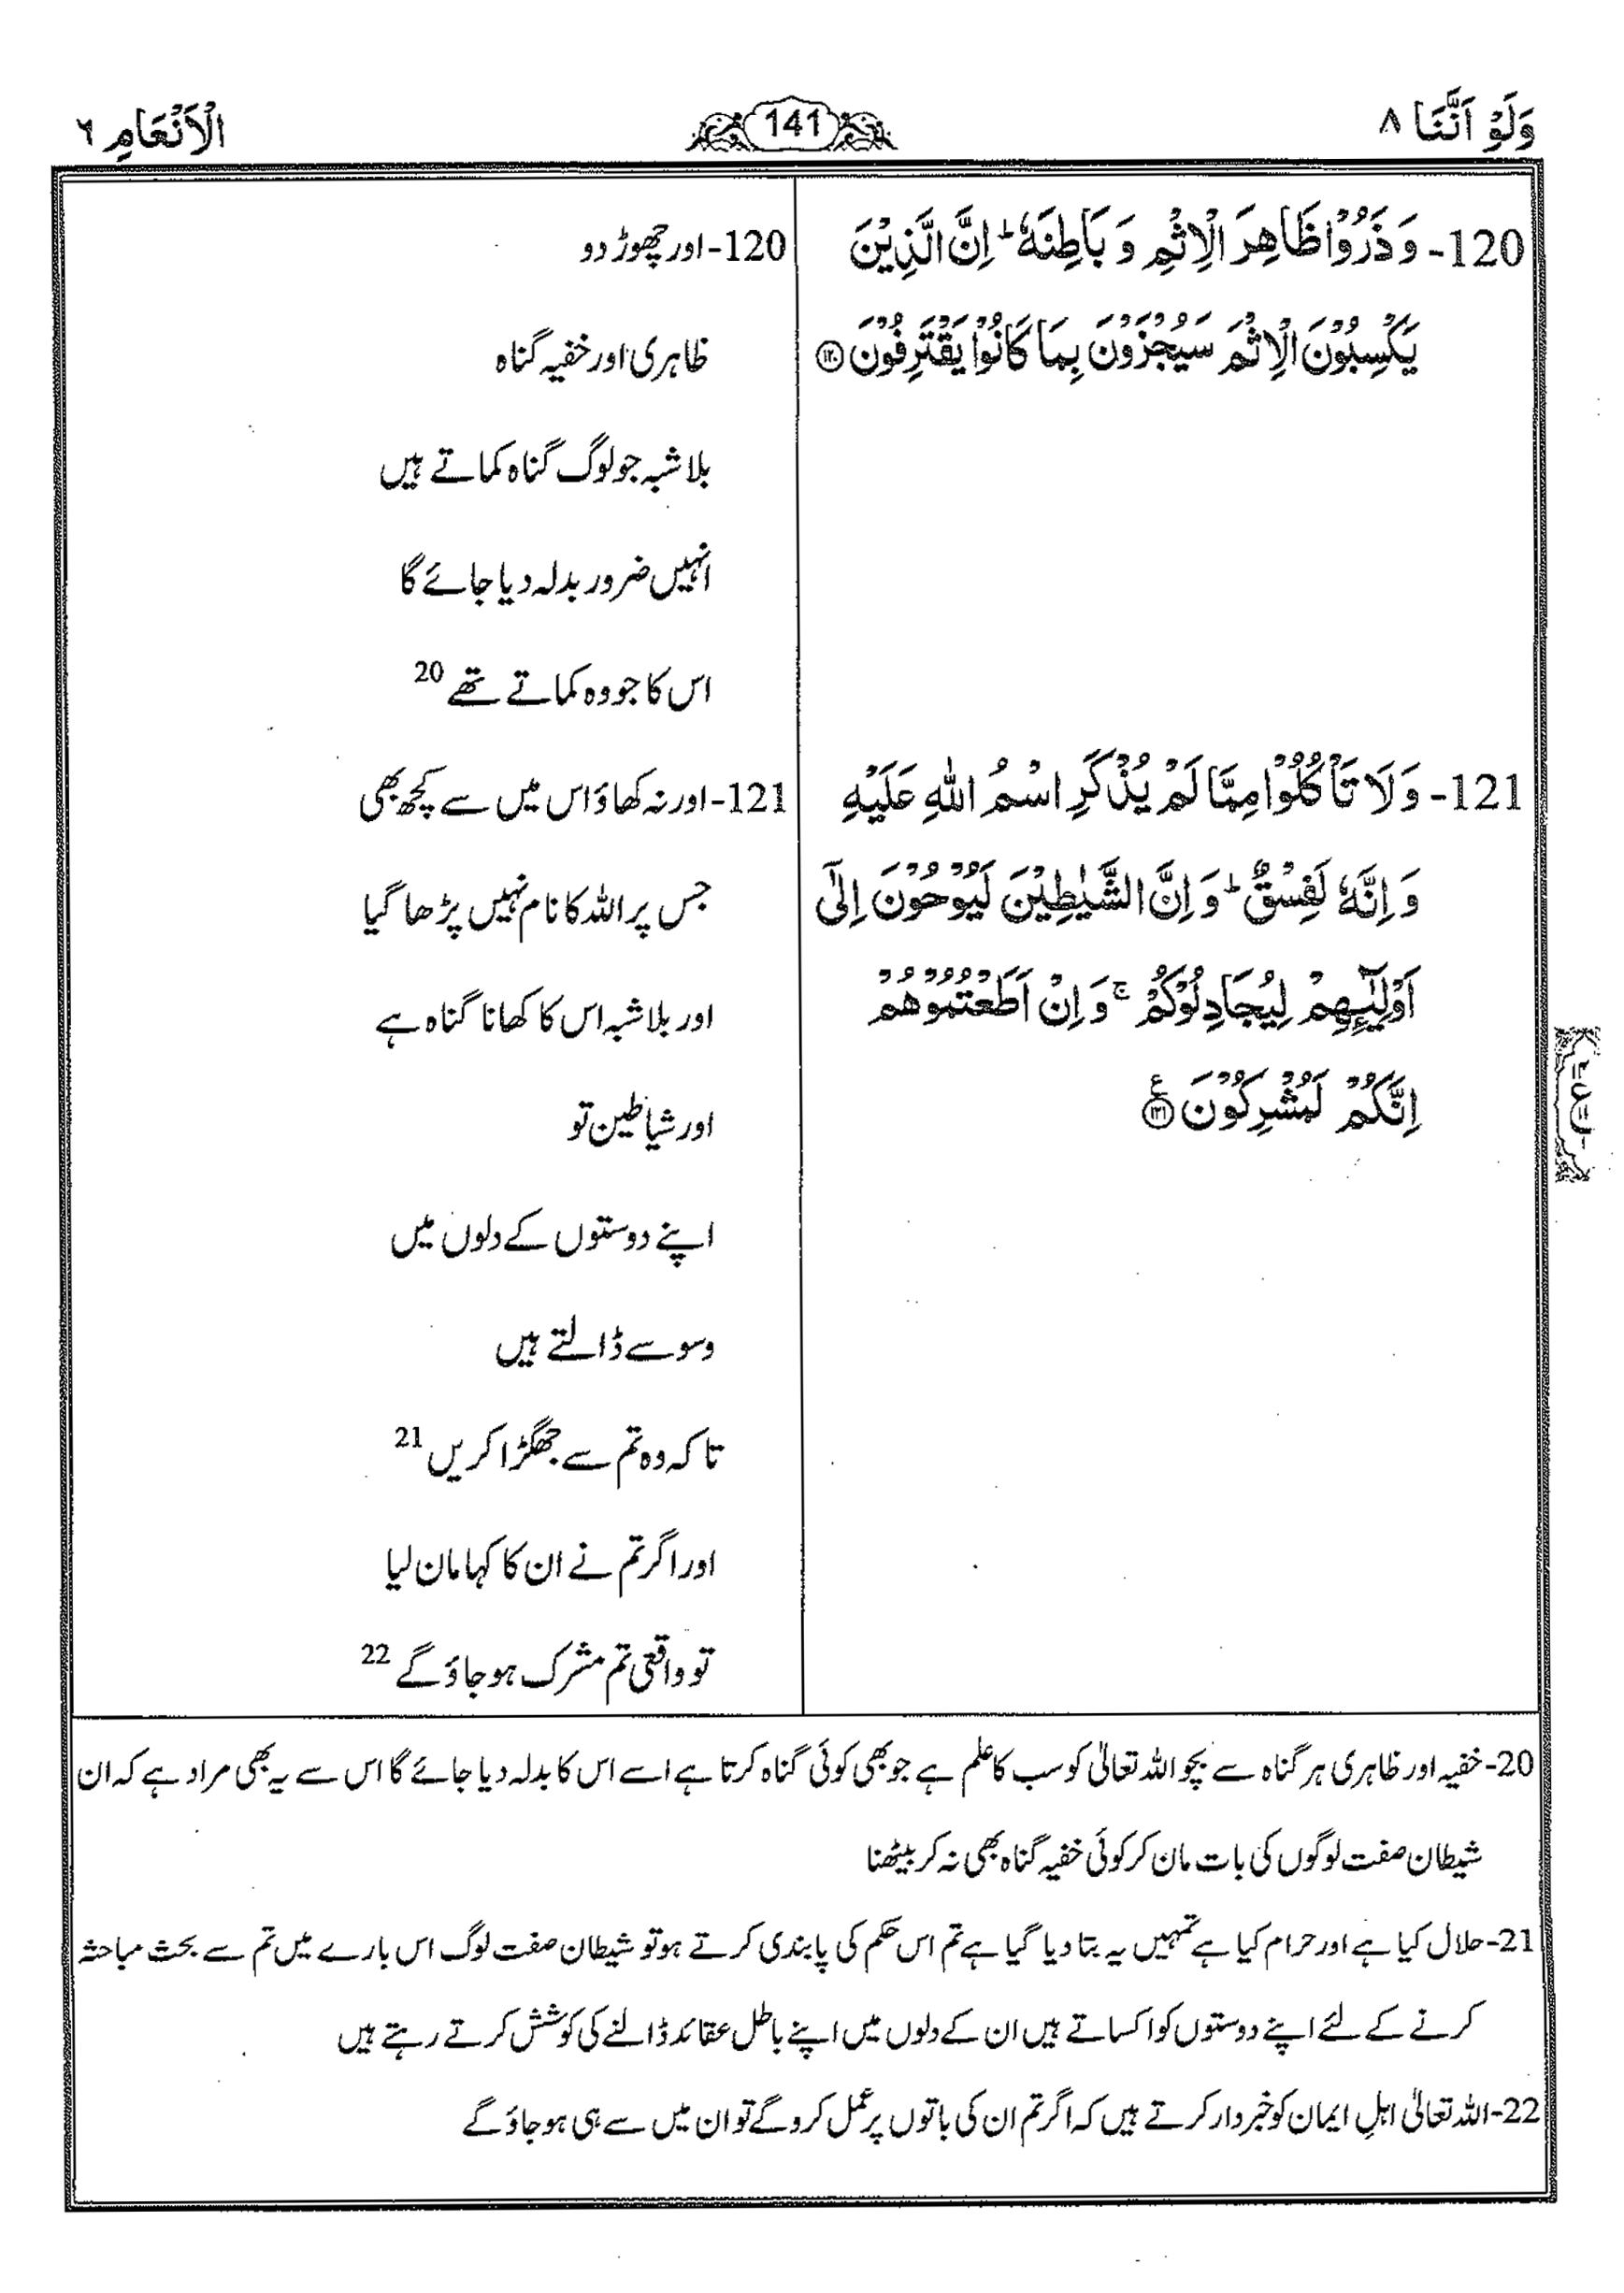 وَلَوْ اَنَّنَا ٨
141
الْاَنْعَامِ ٦
120- وَ ذَرُوْا ظَاهِرَ الْاِثْمِ وَ بَاطِنَهٗ ؕ اِنَّ الَّذِيْنَ
يَكْسِبُوْنَ الْاِثْمَ سَيُجْزَوْنَ بِمَا كَانُوْا يَقْتَرِفُوْنَ ۝۱۲۰
121- وَ لَا تَاْكُلُوْا مِمَّا لَمْ يُذْكَرِ اسْمُ اللّٰهِ عَلَيْهِ
وَ اِنَّهٗ لَفِسْقٌ ؕ وَ اِنَّ الشَّيٰطِيْنَ لَيُوْحُوْنَ اِلٰٓى
اَوْلِيٰٓـِٕهِمْ لِيُجَادِلُوْكُمْ ۚ وَ اِنْ اَطَعْتُمُوْهُمْ
اِنَّكُمْ لَمُشْرِكُوْنَ ۝۱۲۱ ع
120- اور چھوڑ دو
ظاہری اور خفیہ گناہ
بلا شبہ جو لوگ گناہ کماتے ہیں
انہیں ضرور بدلہ دیا جائے گا
اس کا جو وہ کماتے تھے 20
121- اور نہ کھاؤ اس میں سے کچھ بھی
جس پر اللہ کا نام نہیں پڑھا گیا
اور بلا شبہ اس کا کھانا گناہ ہے
اور شیاطین تو
اپنے دوستوں کے دلوں میں
وسوسے ڈالتے ہیں
تا کہ وہ تم سے جھگڑا کریں 21
اور اگر تم نے ان کا کہا مان لیا
تو واقعی تم مشرک ہو جاؤ گے 22
20- خفیہ اور ظاہری ہر گناہ سے بچو اللہ تعالیٰ کو سب کا علم ہے جو بھی کوئی گناہ کرتا ہے اسے اس کا بدلہ دیا جائے گا اس سے یہ بھی مراد ہے کہ ان
شیطان صفت لوگوں کی بات مان کر کوئی خفیہ گناہ بھی نہ کر بیٹھنا
21- حلال کیا ہے اور حرام کیا ہے تمہیں یہ بتا دیا گیا ہے تم اس حکم کی پابندی کرتے ہو تو شیطان صفت لوگ اس بارے میں تم سے بحث مباحثہ
کرنے کے لئے اپنے دوستوں کو اکساتے ہیں ان کے دلوں میں اپنے باطل عقائد ڈالنے کی کوشش کرتے رہتے ہیں
22- اللہ تعالیٰ اہلِ ایمان کو خبردار کرتے ہیں کہ اگر تم ان کی باتوں پر عمل کرو گے تو ان میں سے ہی ہو جاؤ گے